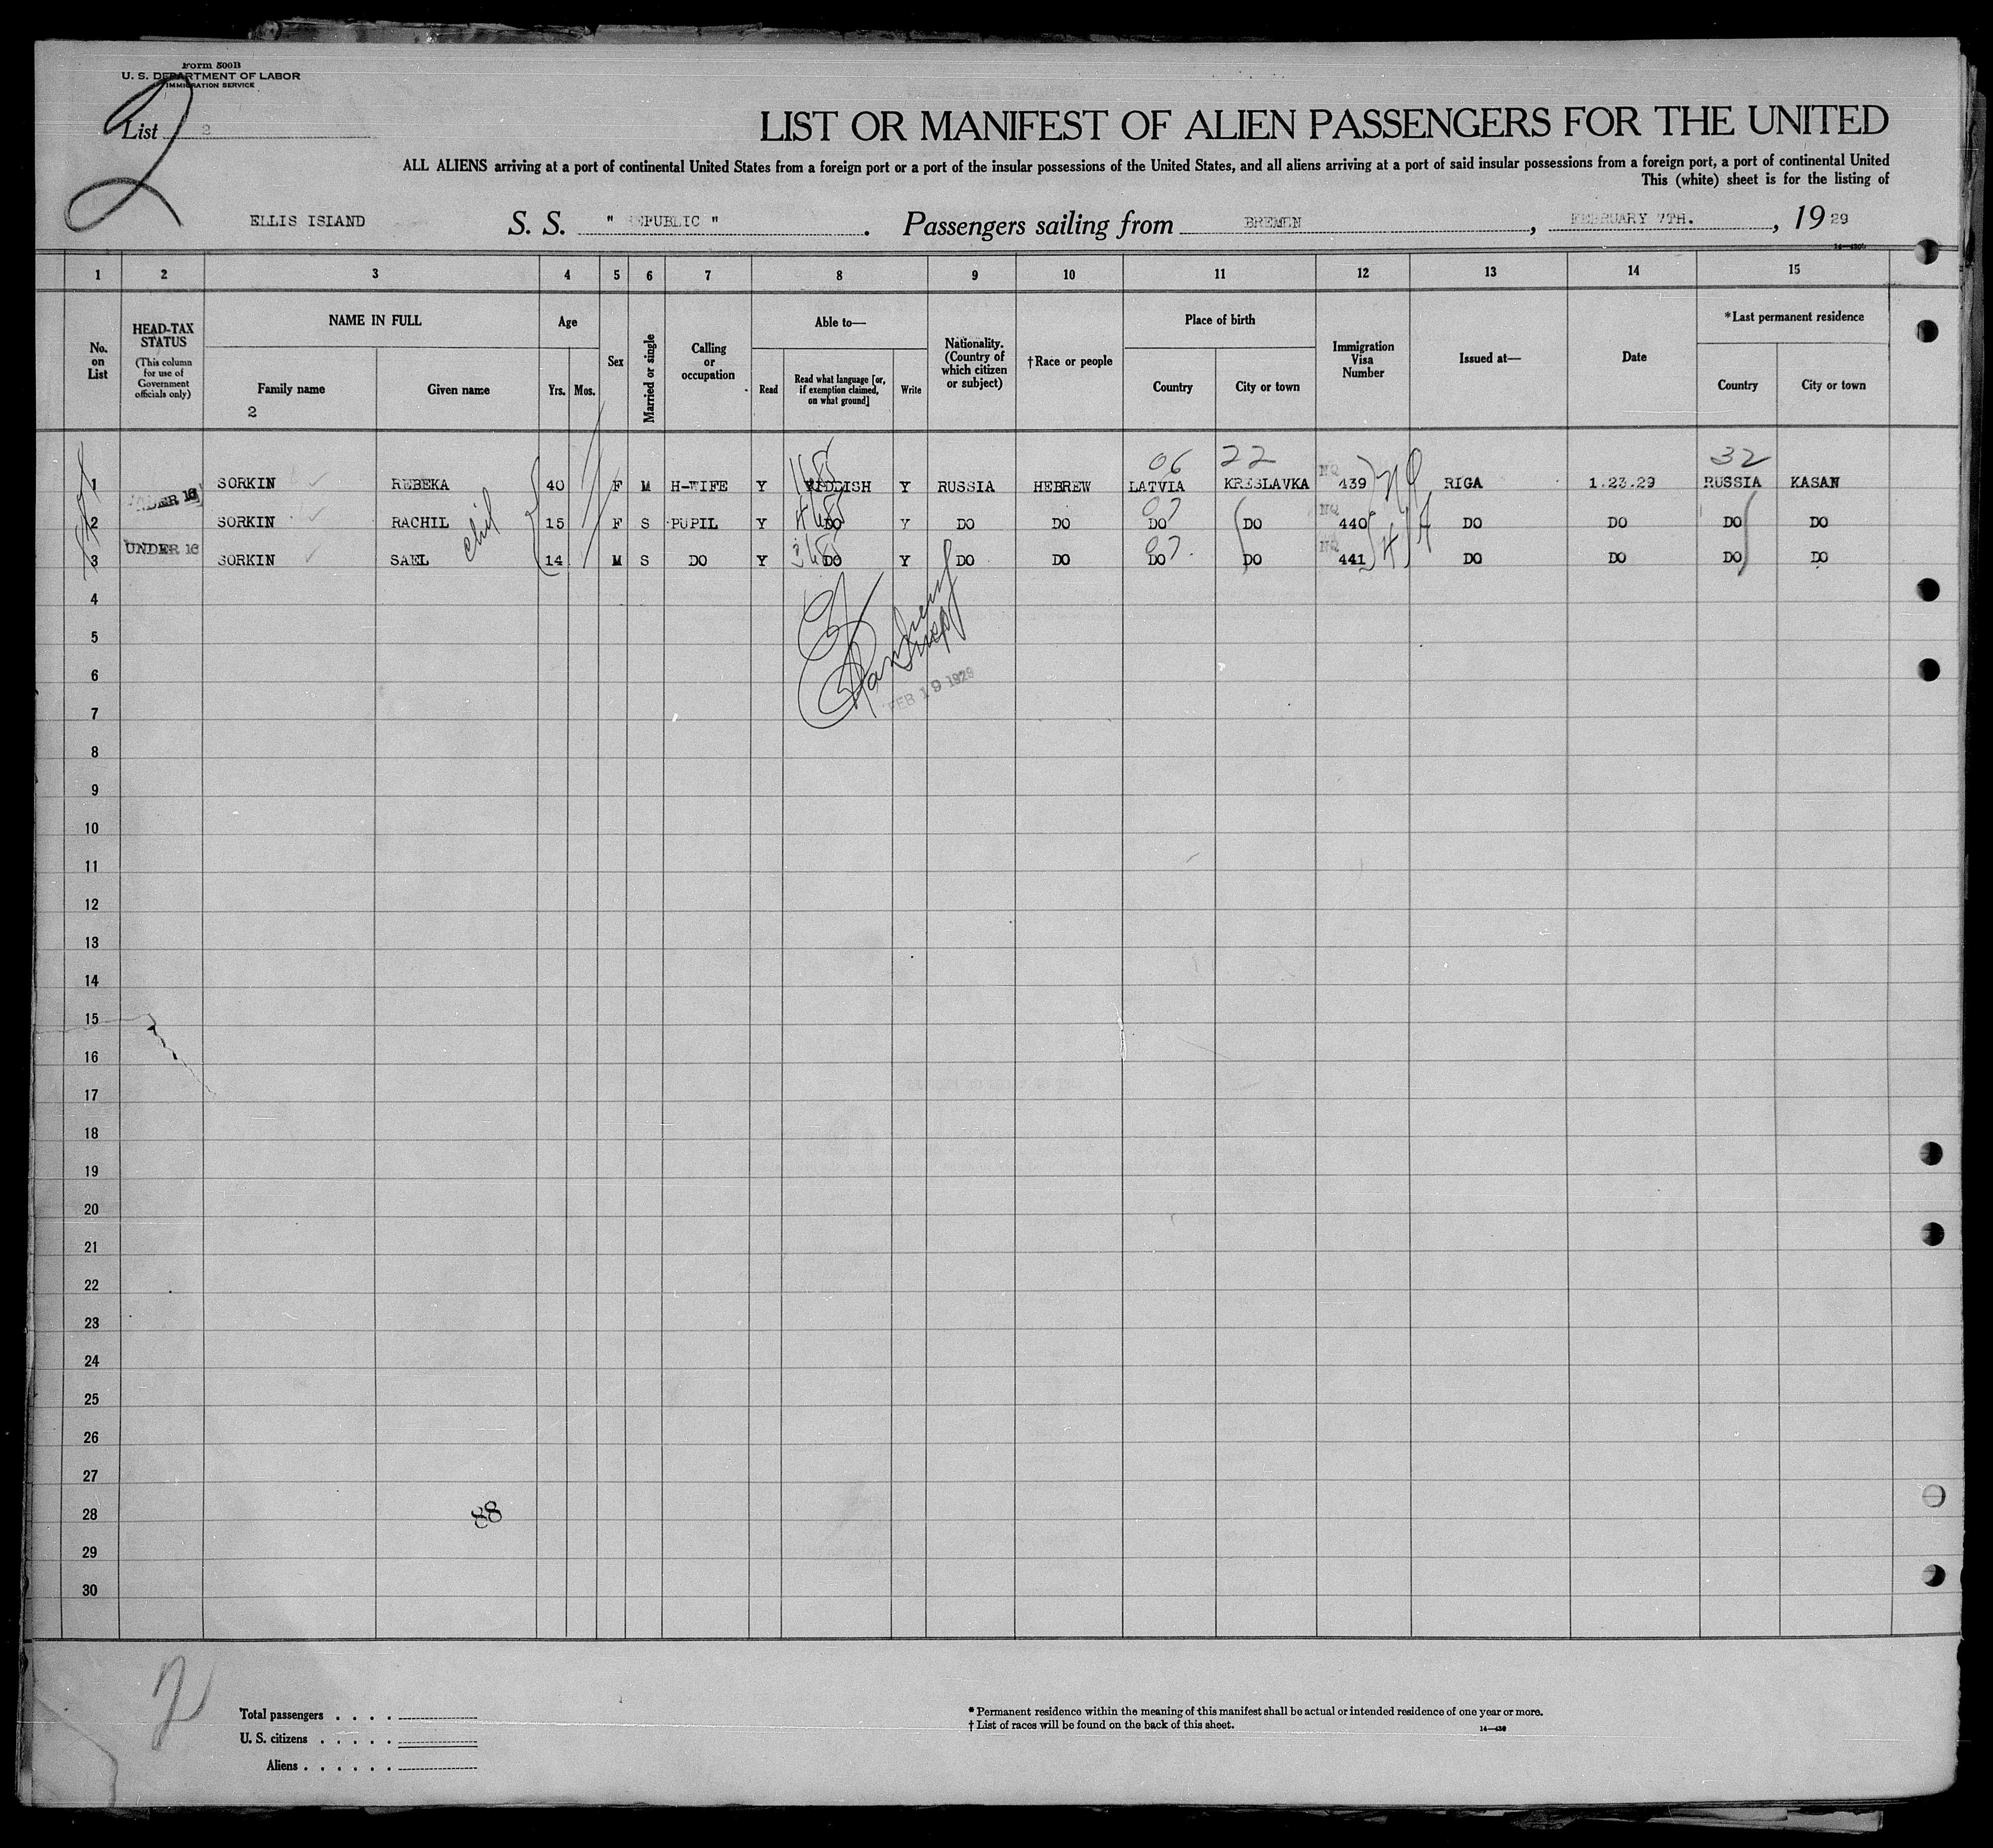 Form 500B
U. S. DEPARTMENT OF LABOR
IMMIGRATION SERVICE
2
List 2
LIST OR MANIFEST OF ALIEN PASSENGERS FOR THE UNITED
ALL ALIENS arriving at a port of continental United States from a foreign port or a port of the insular possessions of the United States, and all aliens arriving at a port of said insular possessions from a foreign port, a port of continental United
This (white) sheet is for the listing of
ELLIS ISLAND S. S. " EPUBLIC " . Passengers sailing from BREMEN , FEBRUARY 7TH. , 19 29
1 2 3 4 5 6 7 8 9 10 11 12 13 14 15
No. on List
HEAD-TAX STATUS
(This column for use of Government officials only)
NAME IN FULL
Family name
2
Given name
Age
Yrs. Mos.
Sex
Married or single
Calling or occupation
Able to—
Read
Read what language [or, if exemption claimed, on what ground]
Write
Nationality. (Country of which citizen or subject)
†Race or people
Place of birth
Country
City or town
Immigration Visa Number
Issued at—
Date
*Last permanent residence
Country
City or town
06 22 32
1 SORKIN REBEKA 40 F M H-WIFE Y YIDDISH Y RUSSIA HEBREW LATVIA KRESLAVKA NQ 439 RIGA 1.23.29 RUSSIA KASAN
UNDER 16
07
2 SORKIN RACHIL 15 F S PUPIL Y DO Y DO DO DO DO NQ 440 DO DO DO DO
UNDER 16
07.
3 SORKIN SAEL 14 M S DO Y DO Y DO DO DO DO NQ 441 DO DO DO DO
4
5
6
FEB 19 1929
7
8
9
10
11
12
13
14
15
16
17
18
19
20
21
22
23
24
25
26
27
28 88
29
30
2
Total passengers . . . .
U. S. citizens . . . . .
Aliens . . . . . .
* Permanent residence within the meaning of this manifest shall be actual or intended residence of one year or more.
† List of races will be found on the back of this sheet. 14—430